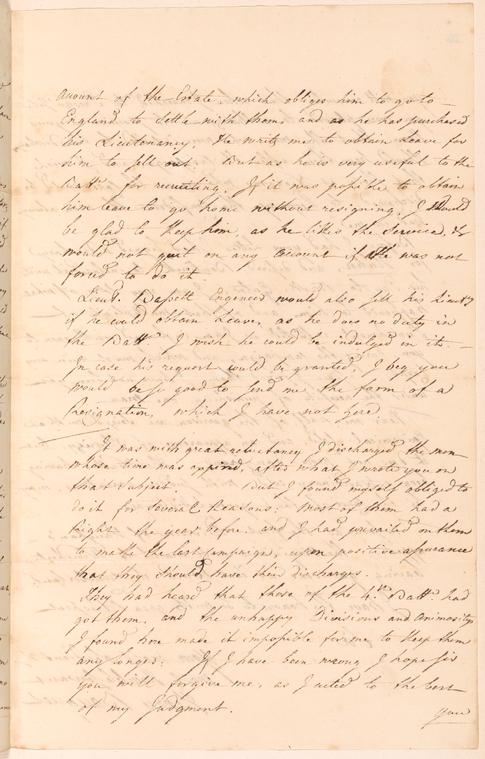 Account of the Estate, which obliges him to go to
England to settle with them. and as he has purchased
his Lieutenancy. He writes me to obtain Leave for
him to sell out But as he is very useful to the
Batt.n for recruiting, If it was possible to obtain
him leave to go home without resigning, I should
be glad to keep him, as he likes the Service, &
would not quit on any account if He was not
forced to do it
Lieut. Bassett Engineer would also sell his Lieut.cy
if he could obtain Leave, as he does no duty in
the Batt.n I wish he could be indulged in it
In case his request could be granted, I beg you
would be so good to send me the form of a
Resignation, which I have not here
It was with great reluctancy I discharged the men
whose time was expired, after what I wrote you on
that subject. But I found myself obliged to
do it for several Reasons: Most of them had a
Right the year before: and I had prevailed on them
to make the last Campaign, upon positive assurance
that they should have their discharges.
They had heard that those of the 4.th Batt.n had
got them, and the unhappy Divisions and Animosity
I found here made it impossible for me to keep them
any longer: If I have been wrong I hope Sir
you will forgive me, as I acted to the best
of my Judgment.